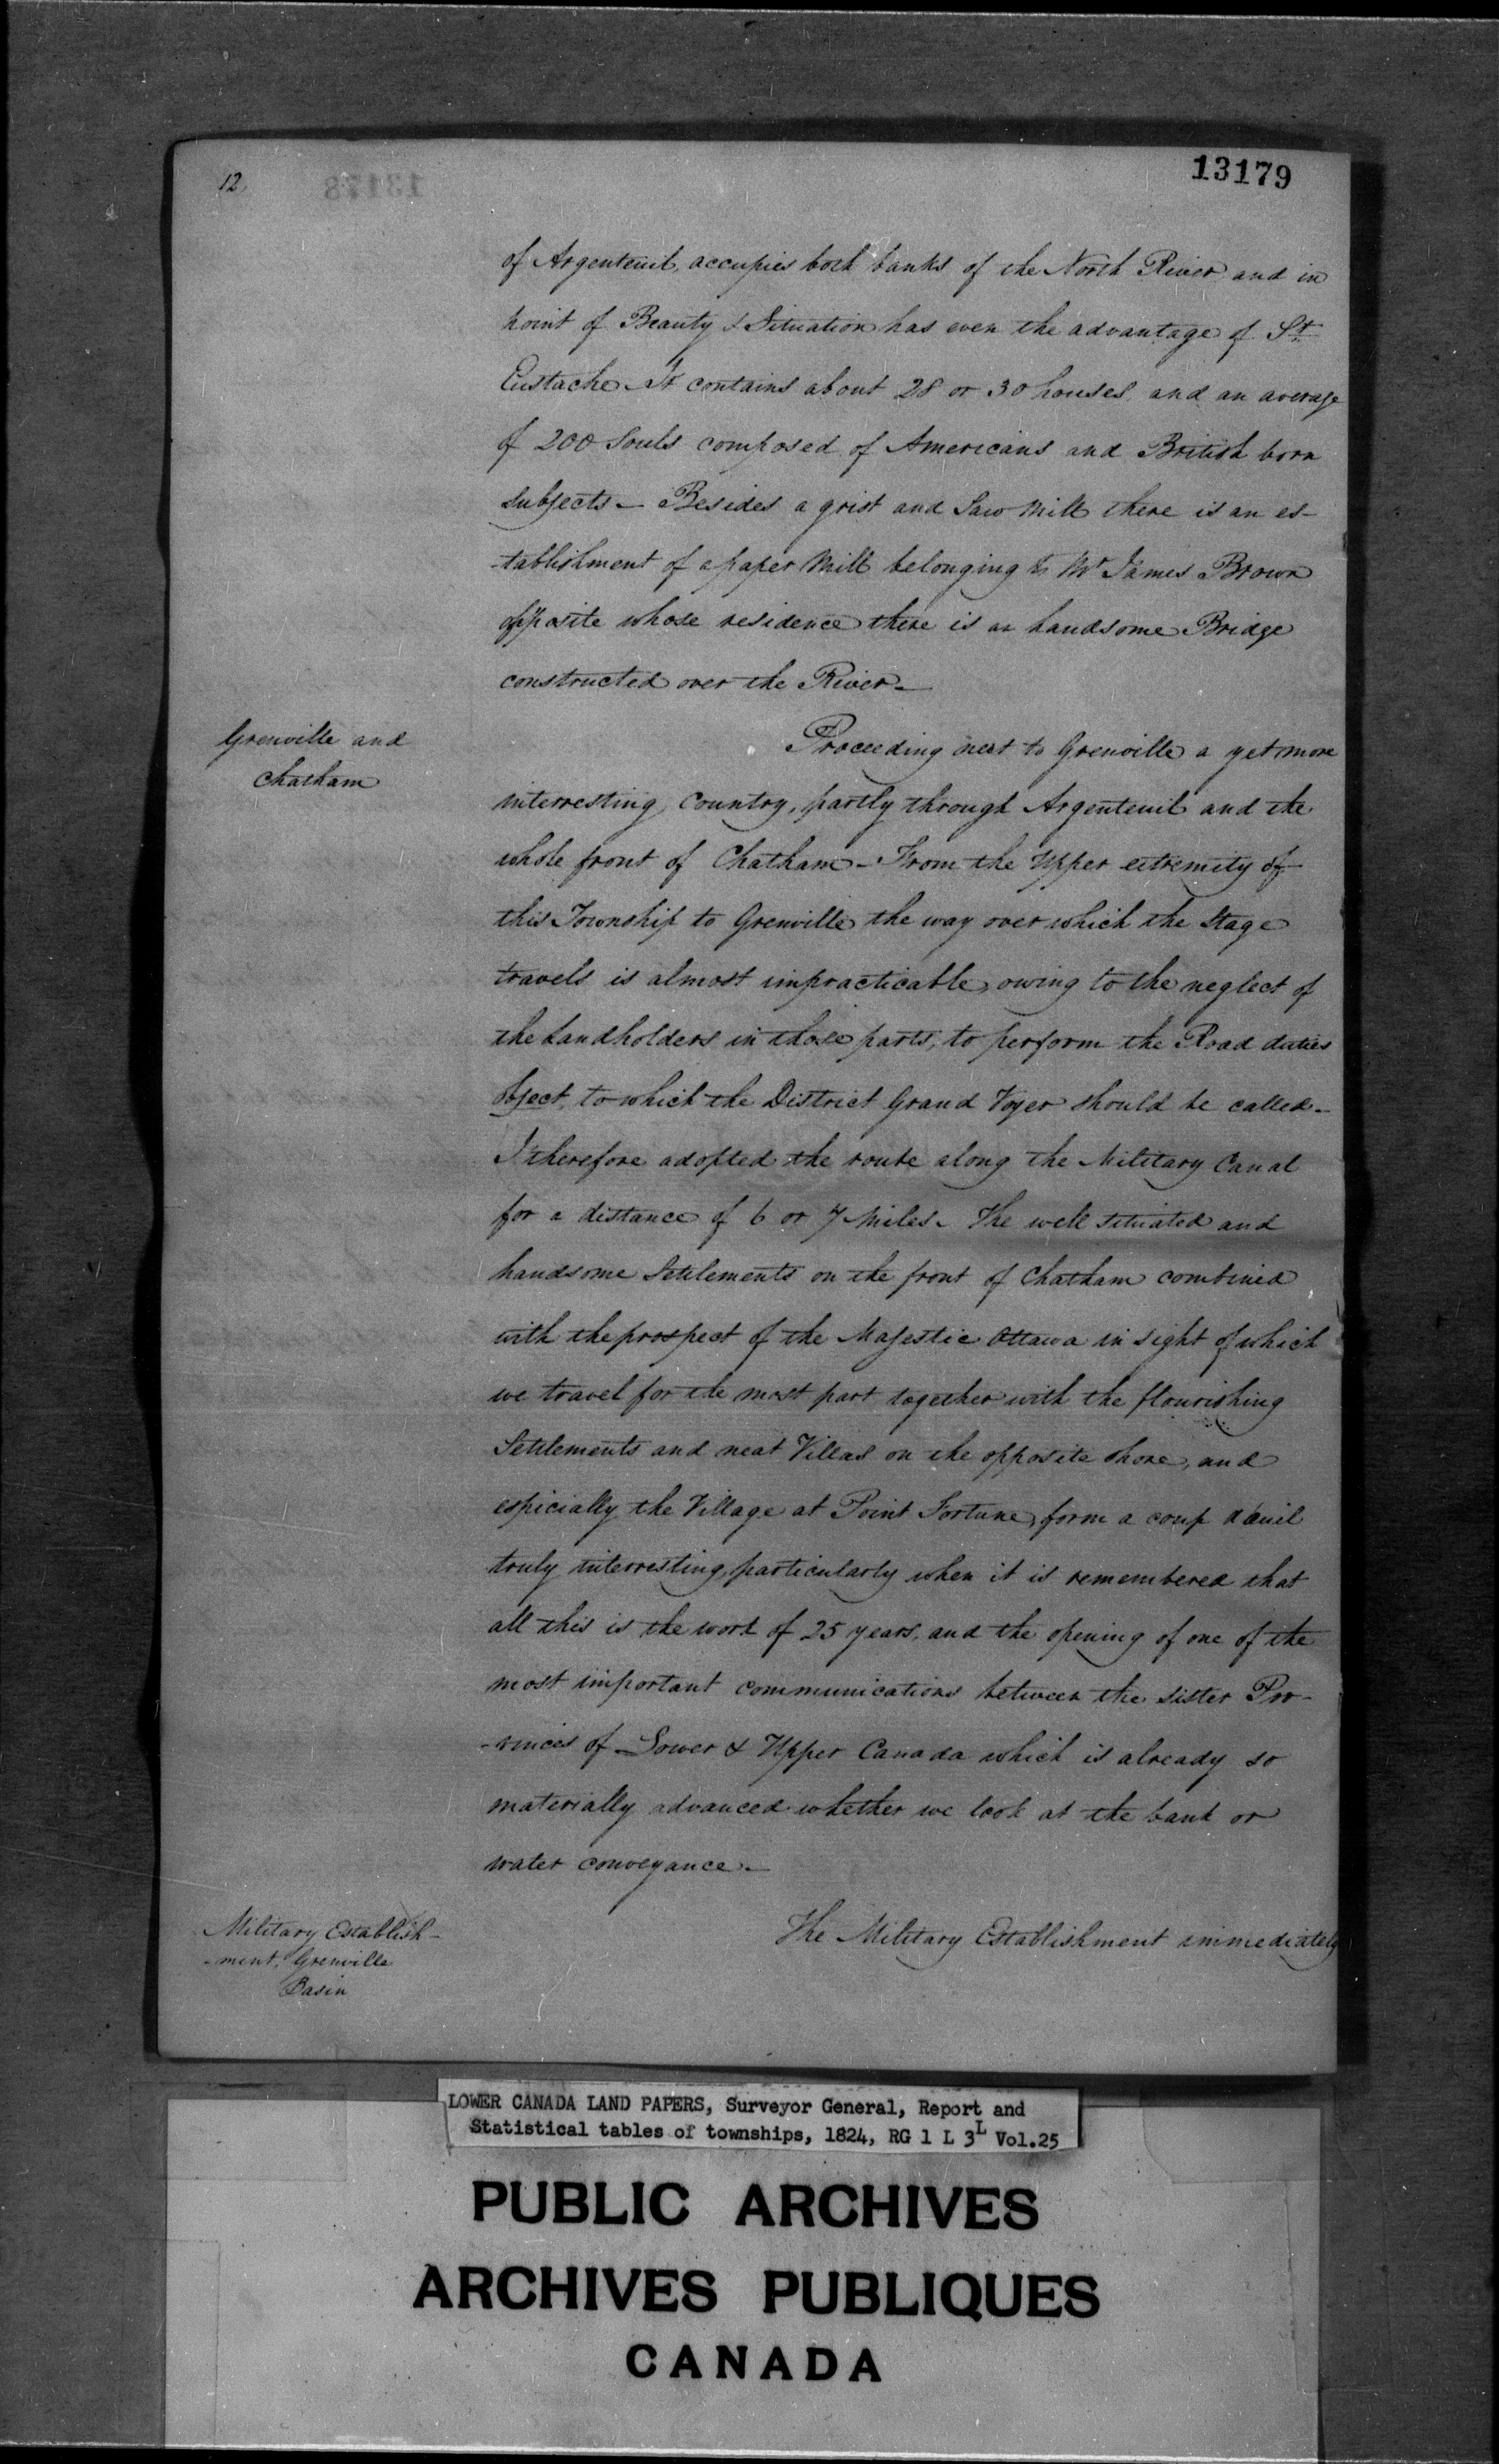 12
13179
of Argenteuil, occupies both banks of the North River, and in
point of Beauty & Situation has even the advantage of St.
Eustache. It contains about 28 or 30 houses, and an average
of 200 Souls composed of Americans and British born
subjects — Besides a grist and Saw Mill there is an es-
-tablishment of a paper Mill belonging to Mr James Brown
opposite whose residence there is an handsome Bridge
constructed over the River —
Grenville and
Chatham
Proceeding next to Grenville a yet more
interresting Country, partly through Argenteuil and the
whole front of Chatham — From the Upper extremity of
this Township to Grenville the way over which the Stage
travels is almost impracticable, owing to the neglect of
the Landholders in those parts, to perform the Road duties
object, to which the District Grand Voyer should be called —
I therefore adopted the route along the Military Canal
for a distance of 6 or 7 Miles. The well situated and
handsome Settlements on the front of Chatham combined
with the prospect of the Majestic Ottawa in sight of which
we travel for the most part together with the flourishing
Settlements and neat Villas on the opposite shore, and
espicially the Village at Point Fortune, form a coup d'œuil
truly interresting, particularly when it is remembered that
all this is the work of 25 years, and the opening of one of the
most important communications between the sister Pro-
-vinces of Lower & Upper Canada which is already so
materially advanced whether we look at the bank or
water conveyance —
Military Establish-
-ment, Grenville
Basin
The Military Establishment immediately
LOWER CANADA LAND PAPERS, Surveyor General, Report and
Statistical tables of townships, 1824, RG 1 L 3L Vol.25
PUBLIC ARCHIVES
ARCHIVES PUBLIQUES
CANADA